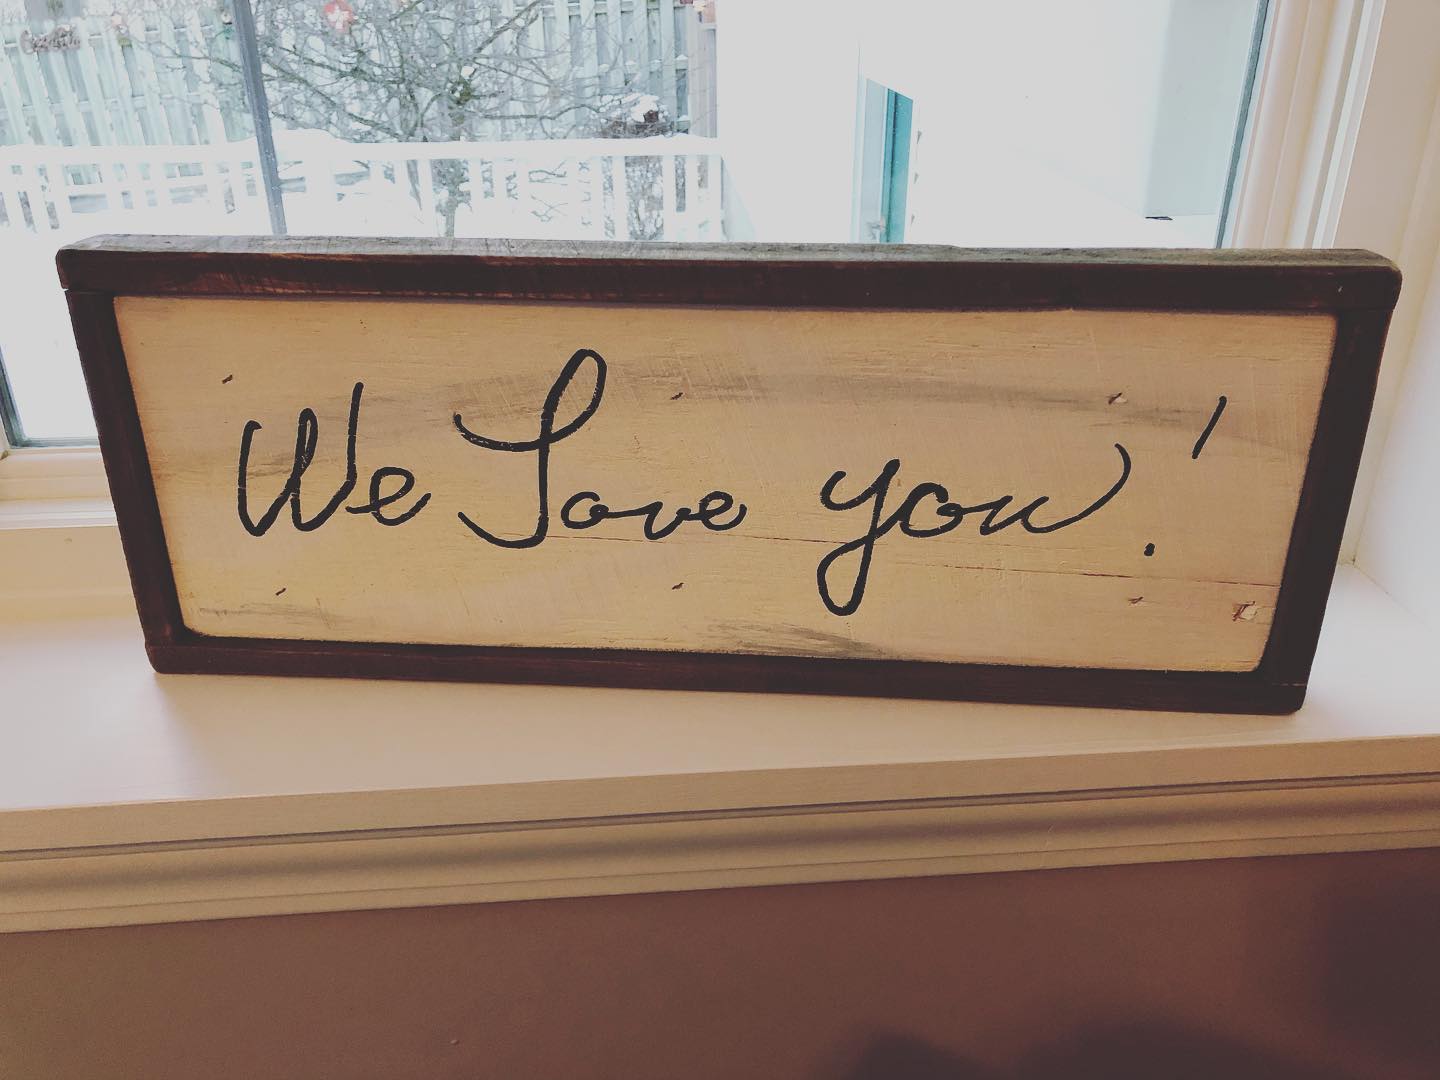 We Love you!